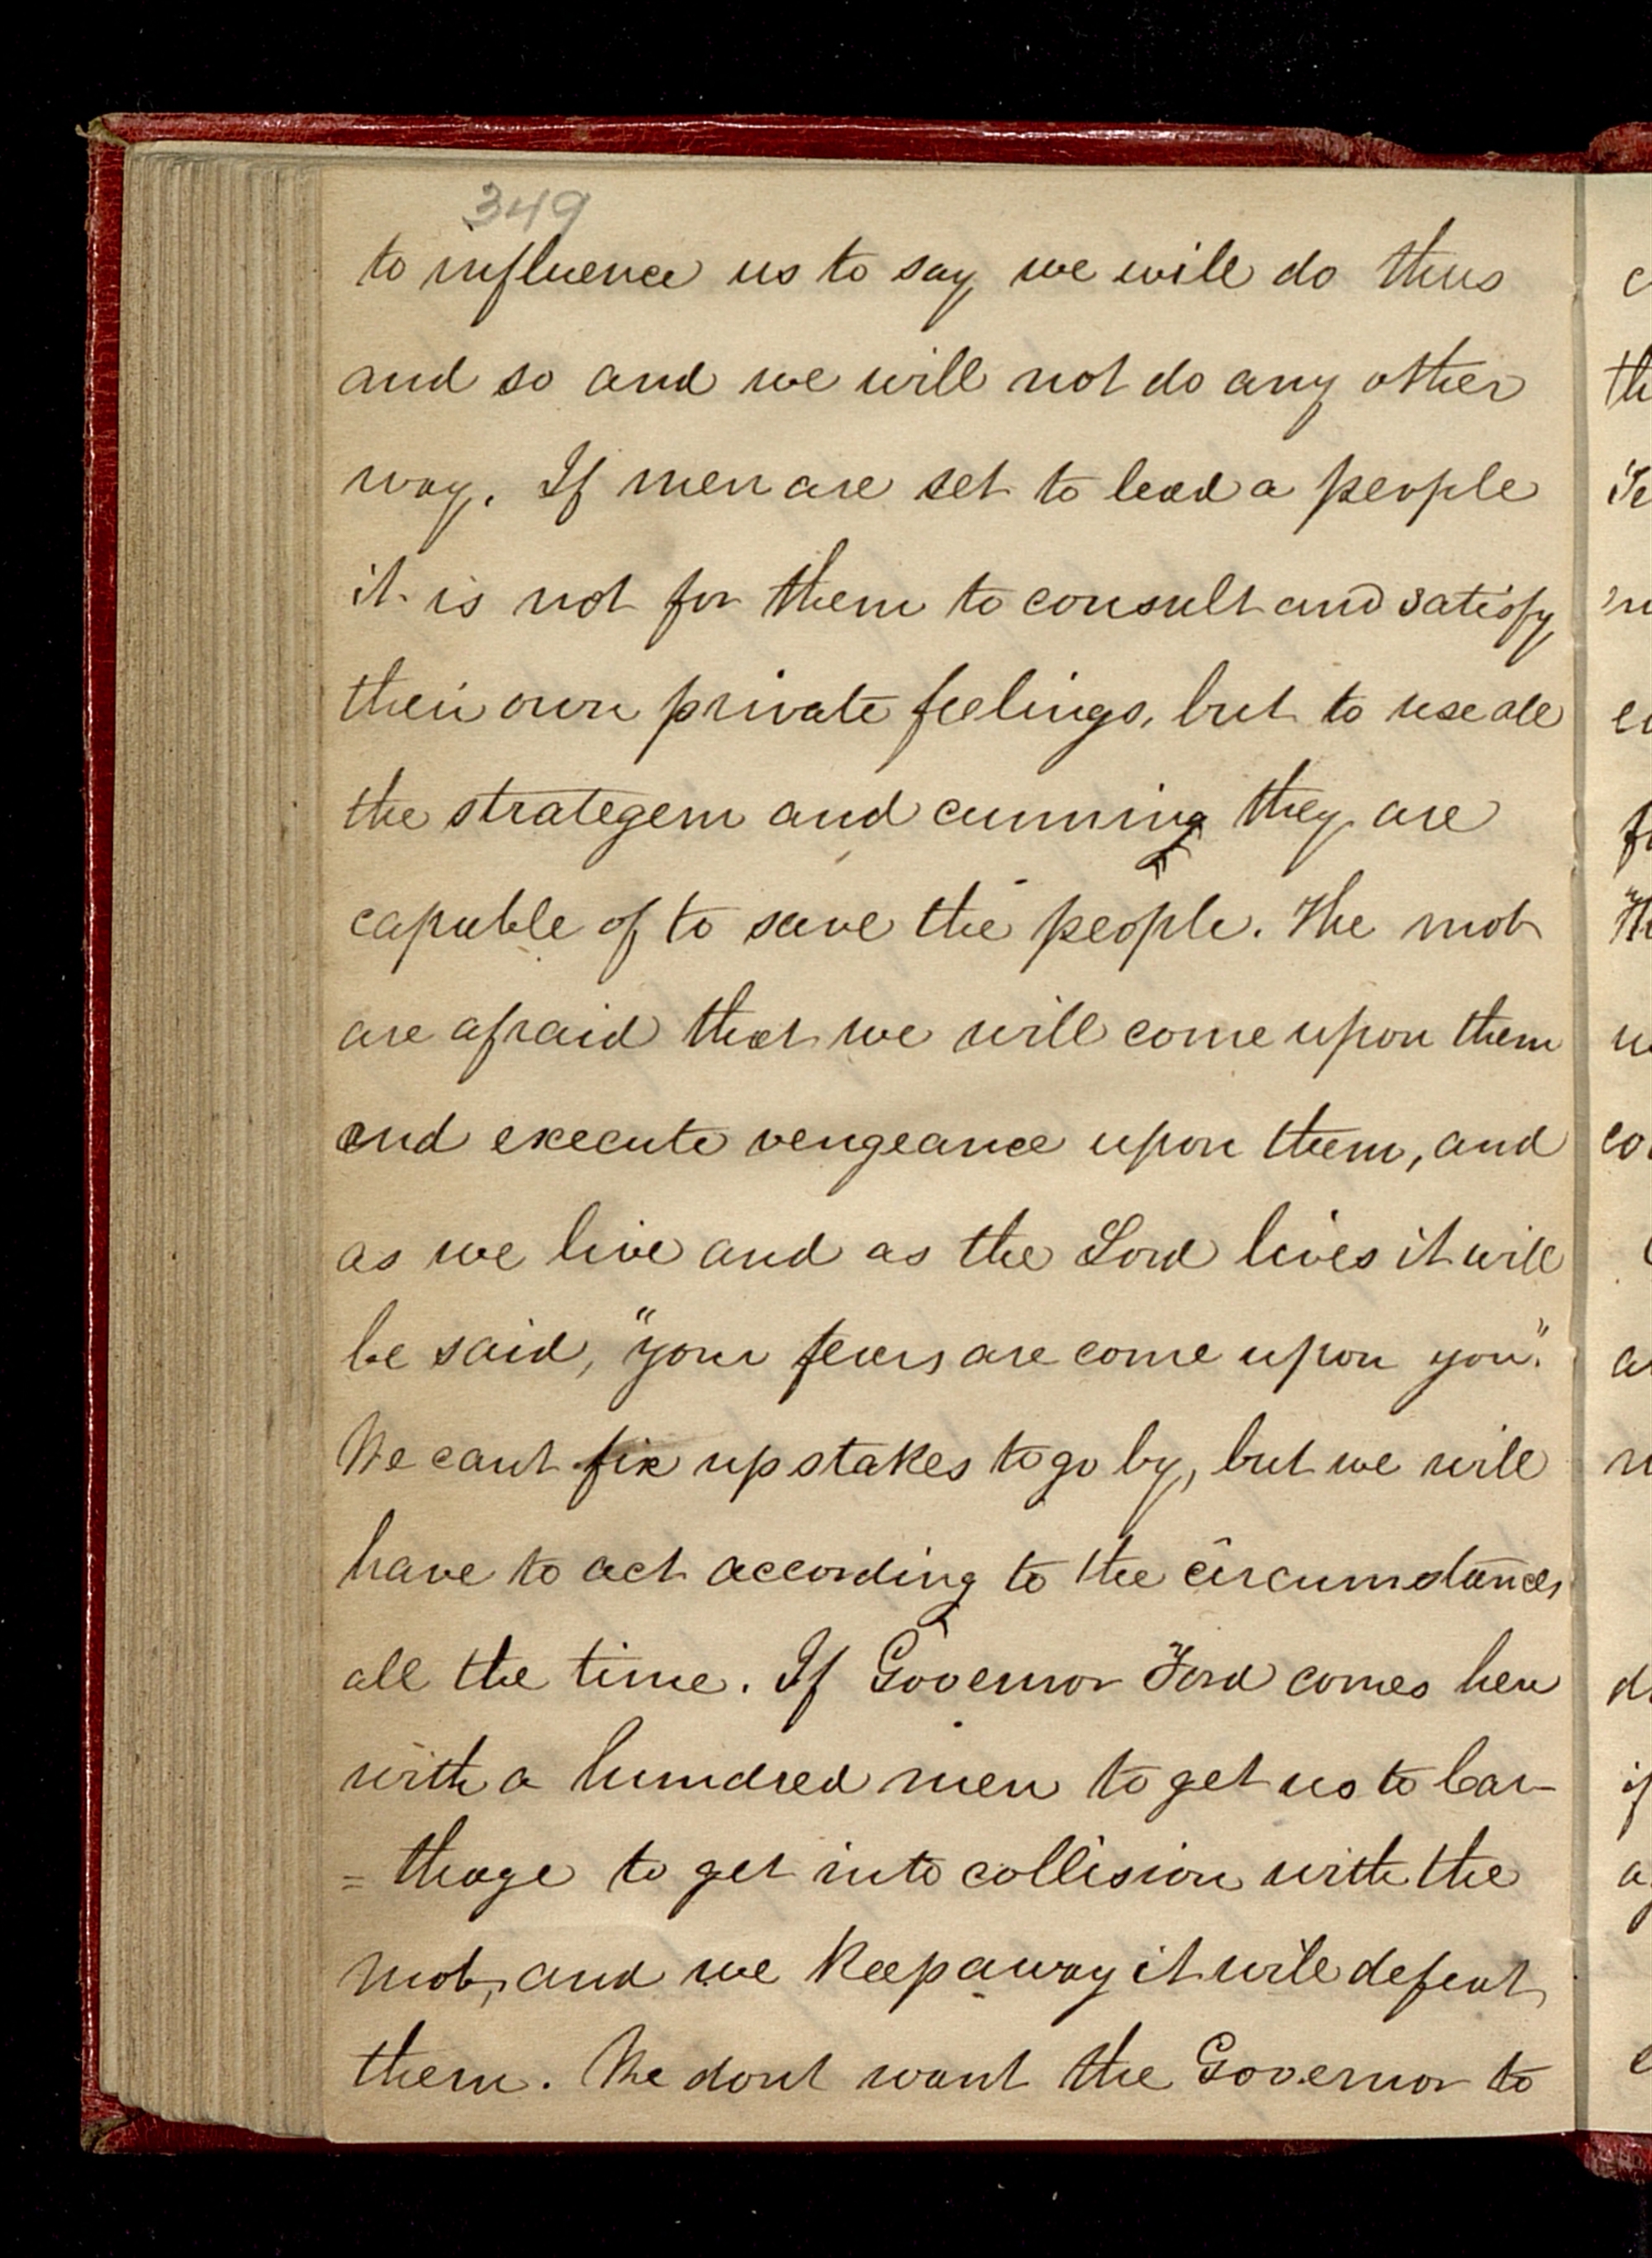 349
to influence us to say we will do thus
and so and we will not do any other
way. If men are set to lead a people
it is not for them to consult and satisfy
their own private feelings, but to use all
the strategem and cunning they are
capable of to save the people. The mob
are afraid that we will come upon them
and execute vengeance upon them, and
as we live and as the Lord lives it will
be said, "your fears are come upon you."
We cant fix up stakes to go by, but we will
have to act according to the circumstances
all the time. If Governor Ford comes here
with a hundred men to get us to Car-
=thage to get into collision with the
mob, and we keep away it will defeat
them. We dont want the Governor to